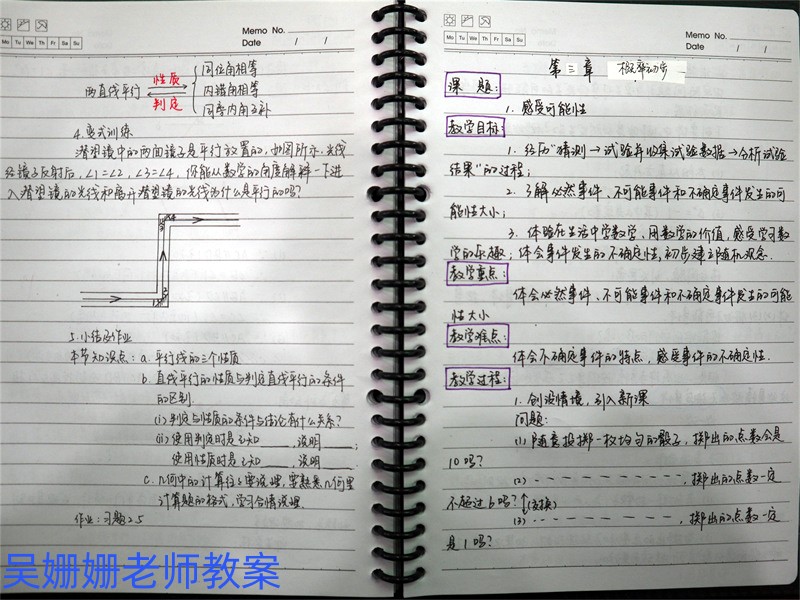 Memo No.
Mo Tu We Th Fr Sa Su
Date / /
两直线平行 性质 判定
同位角相等
内错角相等
同旁内角互补
4.变式训练
潜望镜中的两面镜子是平行放置的,如图所示.光线
经镜子反射后,∠1=∠2,∠3=∠4,你能从数学的角度解释一下进
入潜望镜的光线和离开潜望镜的光线为什么是平行的吗?
5.小结及作业
本节知识点: a.平行线的三个性质
b.直线平行的性质与判定直线平行的条件
的区别.
(i)判定与性质的条件与结论有什么关系?
(ii)使用判定时是已知____,说明____;
使用性质时是已知____,说明____.
c.几何中的计算往往要说理,要熟悉几何里
计算题的格式,学习合情说理.
作业:习题2.5
吴姗姗老师教案
Memo No.
Mo Tu We Th Fr Sa Su
Date / /
第三章 概率初步
课 题:
1.感受可能性
教学目标:
1.经历"猜测→试验并收集试验数据→分析试验
结果"的过程;
2.了解必然事件、不可能事件和不确定事件发生的可
能性大小;
3.体验在生活中学数学,用数学的价值,感受学习数
学的乐趣;体会事件发生的不确定性,初步建立随机观念.
教学重点:
体会必然事件、不可能事件和不确定事件发生的可能
性大小
教学难点:
体会不确定事件的特点,感受事件的不确定性.
教学过程:
1.创设情境,引入新课
问题:
(1)随意投掷一枚均匀的骰子,掷出的点数会是
10吗?
(2) - - - - - - - - - - ,掷出的点数一定
不超过6吗?(交换)
(3) - - - - - - - - - - ,掷出的点数一定
是1吗?